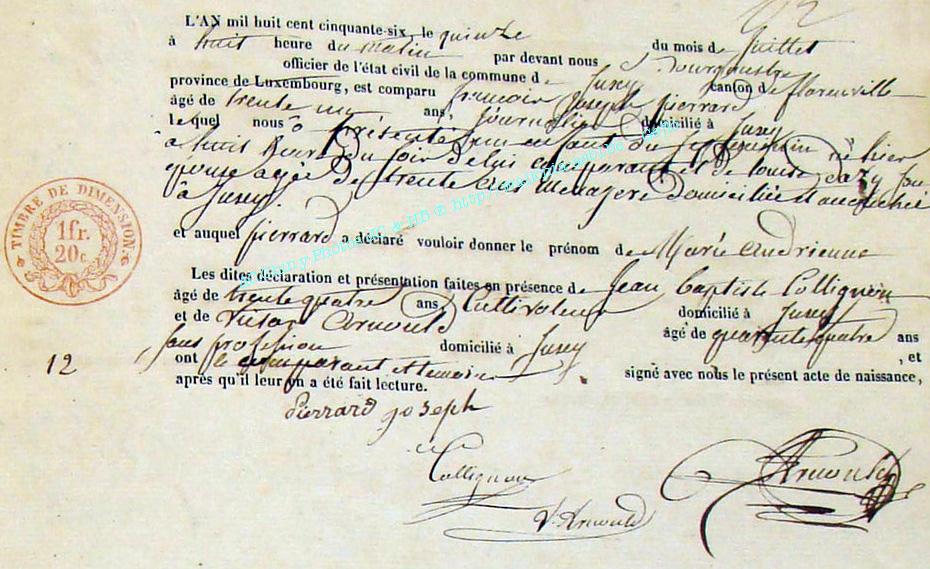 L'AN mil huit cent cinquante-six, le quinze du mois de Juillet
à huit heure du matin par devant nous Bourgmestre
officier de l'état civil de la commune de Jusey canton de florenville
province de Luxembourg, est comparu francois Joseph pierrard
âgé de trente un ans, Journalier domicilié à Jusey
lequel nous a présenté un enfant du sexe feminin né hier
à huit heures du soir de lui comparant et de Louise Dazy son
épouse agée de trente ans Menagere domiciliée
à Jusey.
et auquel pierrard a déclaré vouloir donner le prénom de Marie Andrienne
Les dites déclaration et présentation faites en présence de Jean Baptiste Collignon
âgé de trente quatre ans Cultivateur domicilié à Jusey
et de Victor Arnould âgé de quarante quatre ans
sans profession domicilié à Jusey , et
ont le comparant et temoins signé avec nous le présent acte de naissance,
après qu'il leur en a été fait lecture.
12
TIMBRE DE DIMENSION
1fr.
20c.
Pierrard joseph
Collignon
V. Arnould
Arnould